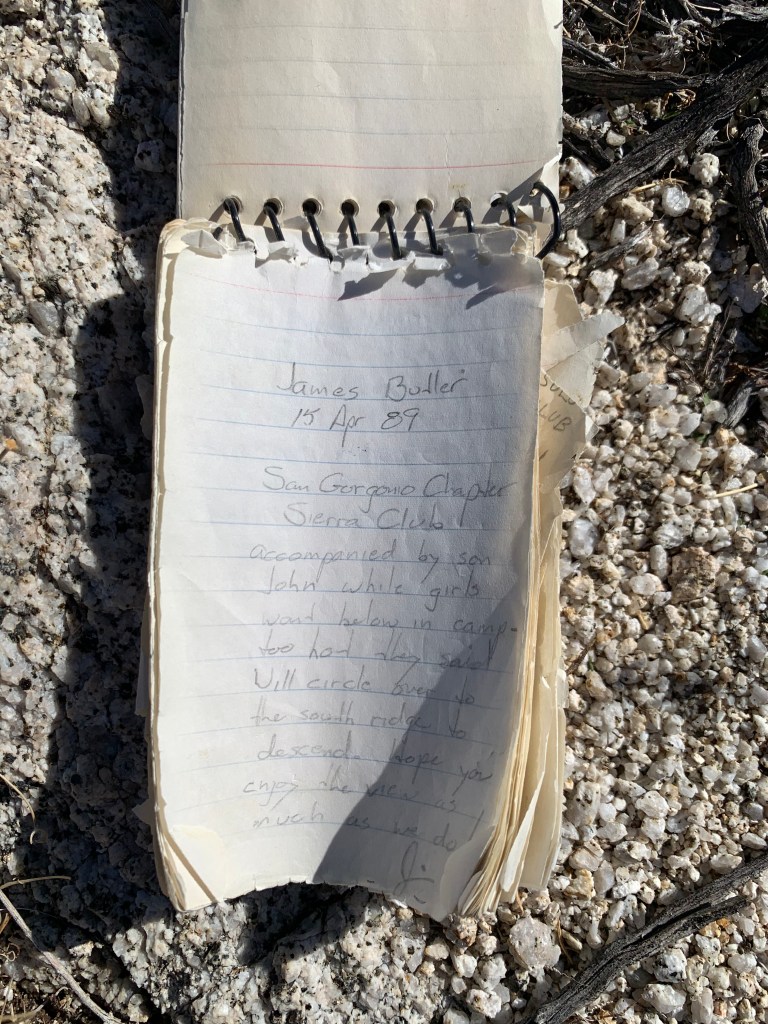 James Butler
15 Apr 89
San Gorgonio Chapter
Sierra Club
accompanied by son
John while girls
want below in camp-
too hot they said
Will circle over to
the south ridge to
descend. Hope you
enjoy the view as
much as we do!
Jim
CLUB